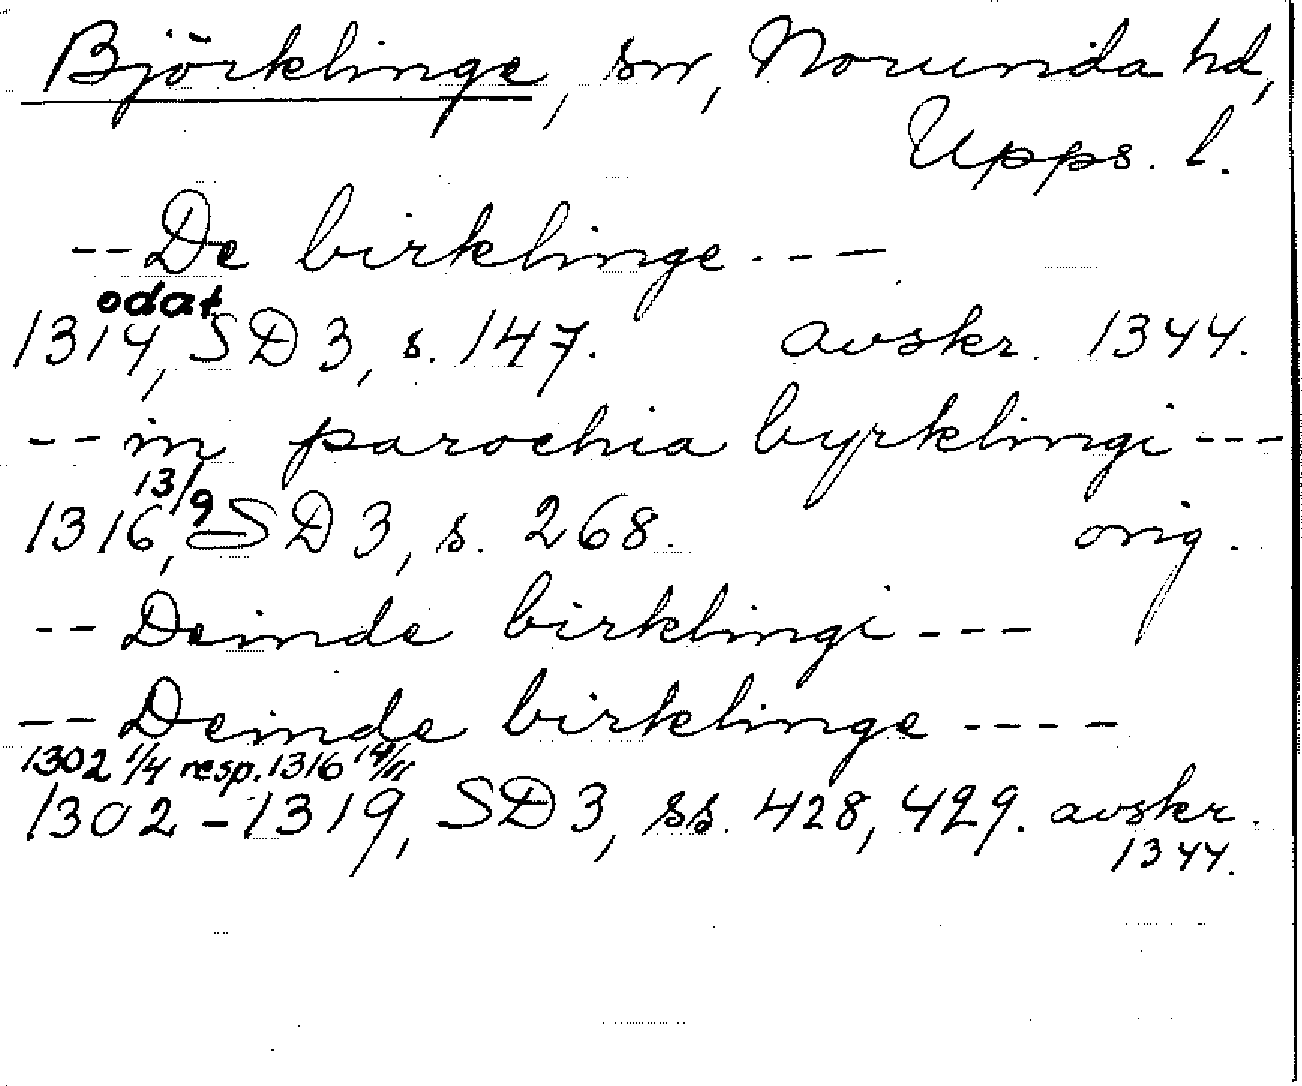 Björklinge, sn, Norunda hd,
Upps. l.
-- De birklinge ---
odat
1314, SD 3, s. 147. avskr. 1344.
-- in parochia byrklingi ---
13/9
1316, SD 3, s. 268. orig.
-- Deinde birklingi ---
-- Deinde birklinge ----
1302 1/4 resp. 1316 14/11
1302-1319, SD 3, ss. 428, 429. avskr.
1344.